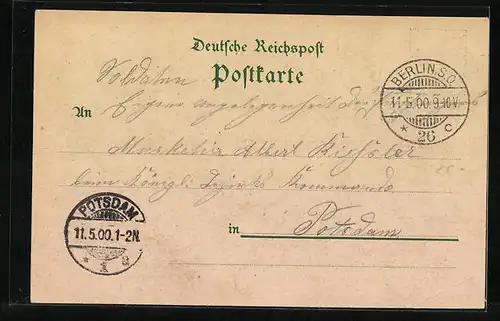 Deutsche Reichspost
Postkarte
Soldaten
Eigene Angelegenheit des
An
Musketir Albert Kiessler
beim Königl. Bezirks Kommando
in Potsdam
BERLIN.S.O.
11.5.00.9-10V.
* 26 c
POTSDAM
11.5.00.1-2N.
* 1